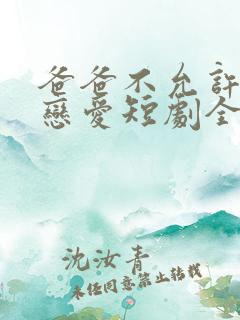 爸爸不允許
戀愛短劇全
沈汝青
未經同意禁止轉載